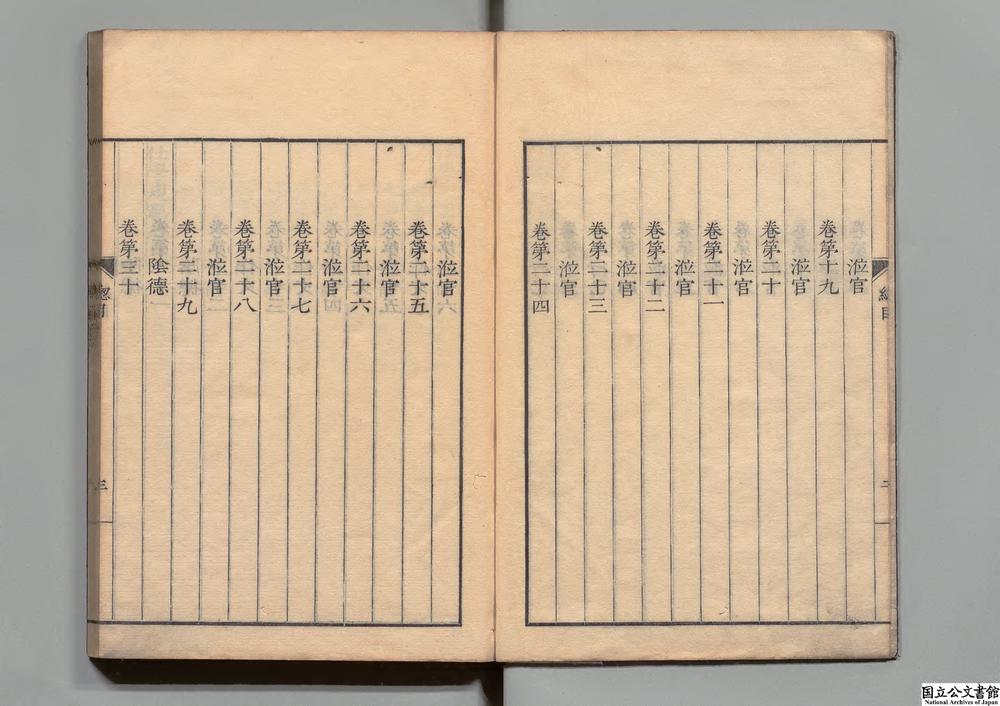 涖官
卷第十九
涖官
卷第二十
涖官
卷第二十一
涖官
卷第二十二
涖官
卷第二十三
涖官
卷第二十四
總目
二
涖官
卷第二十五
涖官
卷第二十六
涖官
卷第二十七
涖官
卷第二十八
涖官
卷第二十九
陰德
卷第三十
三
国立公文書館
National Archives of Japan